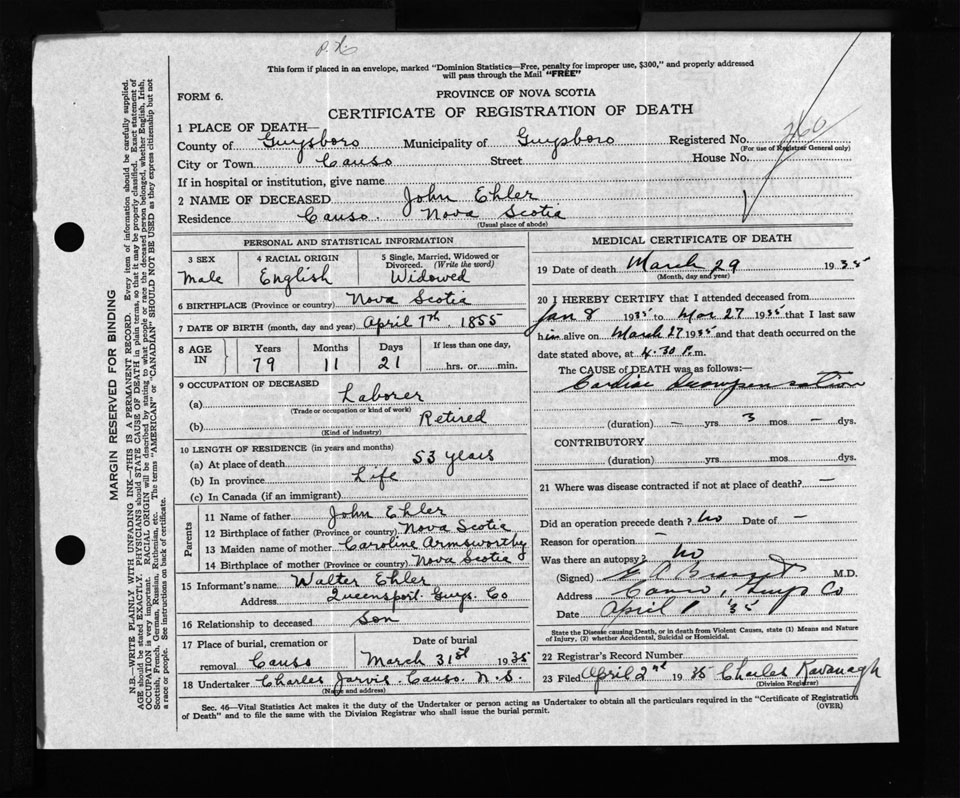 This form if placed in an envelope, marked "Dominion Statistics—Free, penalty for improper use, $300," and properly addressed
will pass through the Mail "FREE"
FORM 6.
PROVINCE OF NOVA SCOTIA
CERTIFICATE OF REGISTRATION OF DEATH
260
1 PLACE OF DEATH—
County of Guysboro Municipality of Guysboro Registered No.
(For use of Registrar General only)
City or Town Canso Street House No.
If in hospital or institution, give name
2 NAME OF DECEASED John Ehler
Residence Canso. Nova Scotia
(Usual place of abode)
PERSONAL AND STATISTICAL INFORMATION
3 SEX 4 RACIAL ORIGIN 5 Single, Married, Widowed or
Divorced. (Write the word)
Male English Widowed
6 BIRTHPLACE (Province or country) Nova Scotia
7 DATE OF BIRTH (month, day and year) April 7th, 1855
8 AGE IN Years Months Days If less than one day,
79 11 21 hrs. or min.
9 OCCUPATION OF DECEASED
(a) Laborer
(Trade or occupation or kind of work)
(b) Retired
(Kind of industry)
10 LENGTH OF RESIDENCE (in years and months)
(a) At place of death 53 years
(b) In province Life
(c) In Canada (if an immigrant)
Parents
11 Name of father John Ehler
12 Birthplace of father (Province or country) Nova Scotia
13 Maiden name of mother Caroline Armsworthy
14 Birthplace of mother (Province or country) Nova Scotia
15 Informant's name Walter Ehler
Address Queensport. Guys. Co
16 Relationship to deceased Son
17 Place of burial, cremation or Date of burial
removal Canso March 31st 1935
18 Undertaker Charles Jarvis. Canso. N.S.
(Name and address)
MEDICAL CERTIFICATE OF DEATH
19 Date of death March 29 1935
(Month, day and year)
20 I HEREBY CERTIFY that I attended deceased from
Jan 8 1935 to Mar 27 1935 that I last saw
him alive on March 27 1935 and that death occurred on
date stated above, at 4.30 P.m.
The CAUSE of DEATH was as follows:
Cardiac Decompensation
(duration) — yrs 3 mos — dys.
CONTRIBUTORY
(duration) yrs. mos. dys.
21 Where was disease contracted if not at place of death? —
Did an operation precede death? no Date of —
Reason for operation —
Was there an autopsy? no
(Signed) M.D.
Address Canso, Guys Co
Date April 1 '35
State the Disease causing Death, or in death from Violent Causes, state (1) Means and Nature
of Injury, (2) whether Accidental, Suicidal or Homicidal.
22 Registrar's Record Number
23 Filed April 2nd 1935 Charles Kavanagh
(Division Registrar)
Sec. 46—Vital Statistics Act makes it the duty of the Undertaker or person acting as Undertaker to obtain all the particulars required in the "Certificate of Registration
of Death" and to file the same with the Division Registrar who shall issue the burial permit.
(OVER)
MARGIN RESERVED FOR BINDING
N.B.—WRITE PLAINLY WITH UNFADING INK—THIS IS A PERMANENT RECORD. Every item of information should be carefully supplied.
AGE should be stated EXACTLY. PHYSICIANS should STATE CAUSE OF DEATH in plain terms, so that it may be properly classified. Exact statement of
OCCUPATION is very important. RACIAL ORIGIN will be described by stating to what people or race the deceased person belonged, whether English, Irish,
Scottish, French, German, Russian, Ruthenian, etc. The terms "AMERICAN" or "CANADIAN" SHOULD NOT BE USED as they express citizenship but not
a race or people. See instructions on back of certificate.